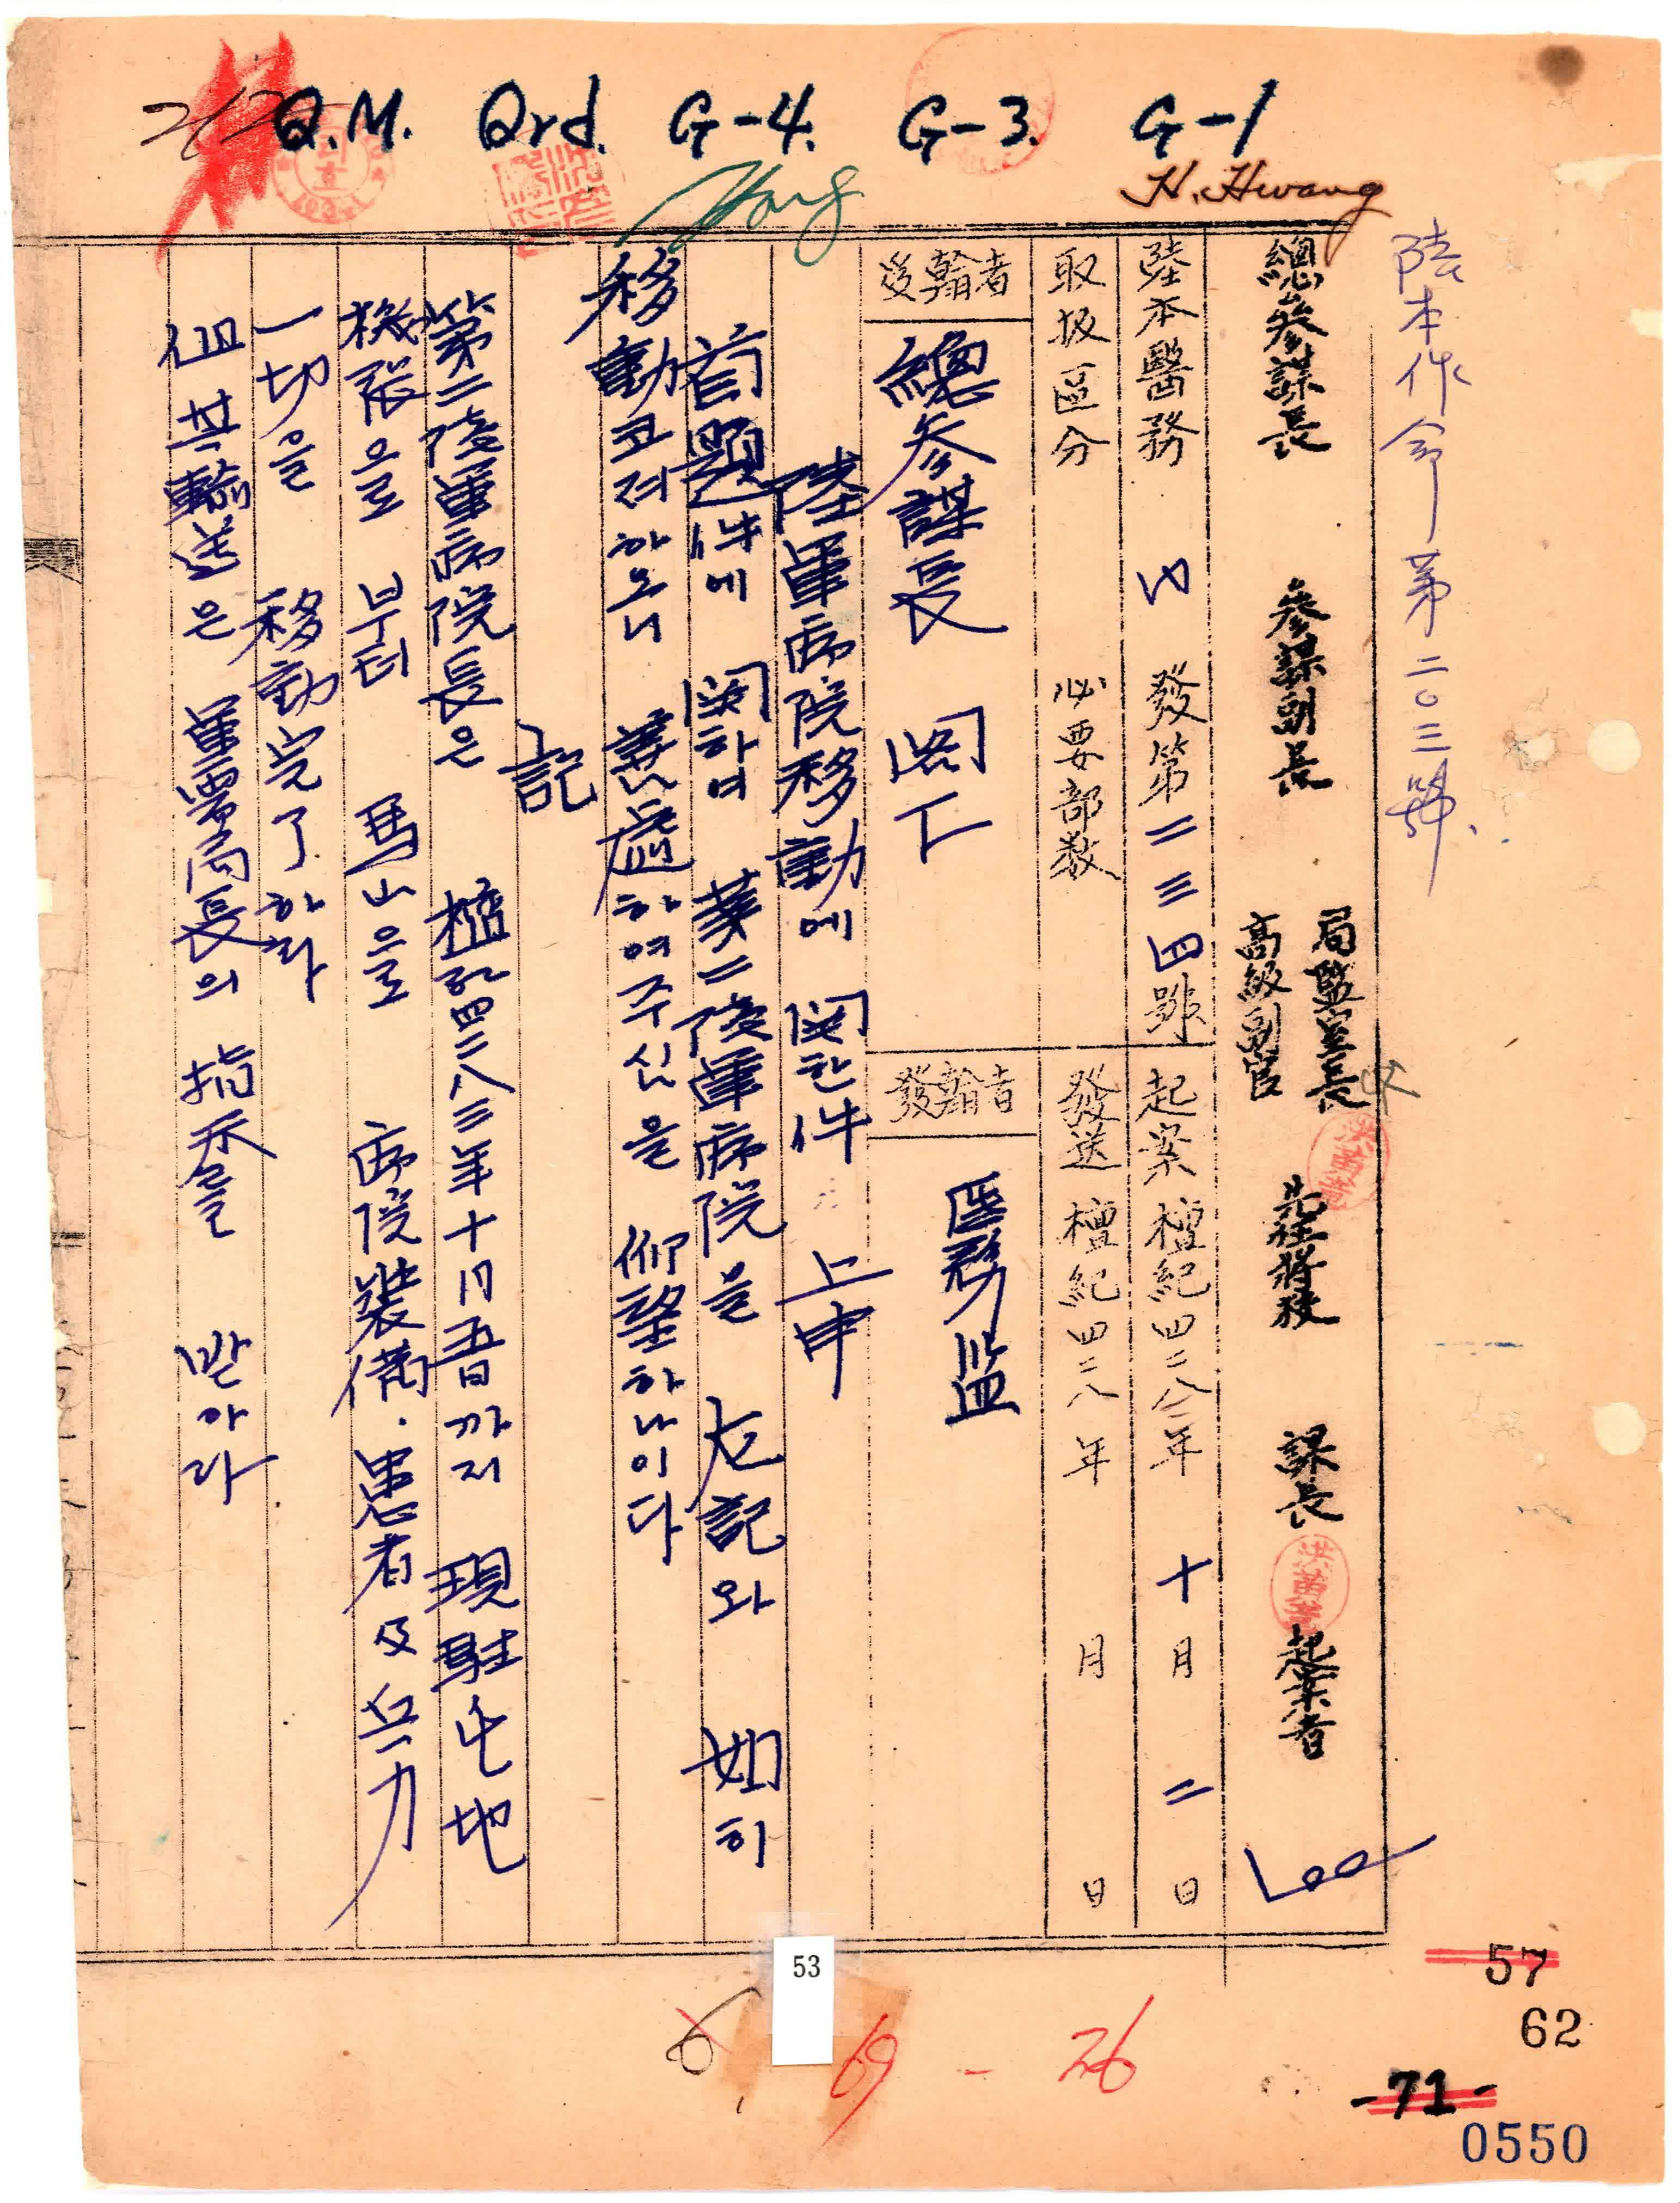 Q.M. Ord. G-4. G-3. G-1
H. Hwang
Hong
陸本作命第二〇三號
總參謀長 參謀副長 局監室長 高級副官 先任將校 課長 起案者
Lee
陸本醫務 內 發第二三四號 起案 檀紀四二八三年 十月 二日
取扱區分 必要部數 發送 檀紀四二八 年 月 日
受翰者 總參謀長 閣下 發翰者 醫務監
陸軍病院移動에 関한件 上申
首題件에 関하여 第二陸軍病院을 左記와 如히
移動코저하오니 善處하여주심을 仰望하나이다
記
第二陸軍病院長은 檀紀四二八三年十月五日까지 現駐屯地
機張으로 부터 馬山으로 病院裝備·患者及兵力
一切을 移動完了하라
但 其輸送은 軍需局長의 指示를 받아라
53
57
62
6
69 - 26
-71-
0550